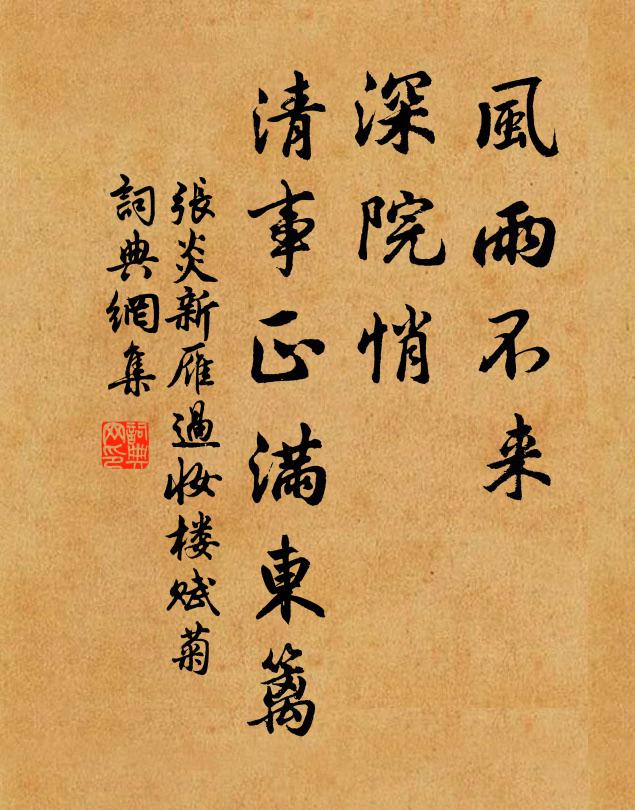 風雨不来
深院悄
清事正滿東籬
張炎新雁過妝樓賦菊
詞典網集
詞典网印